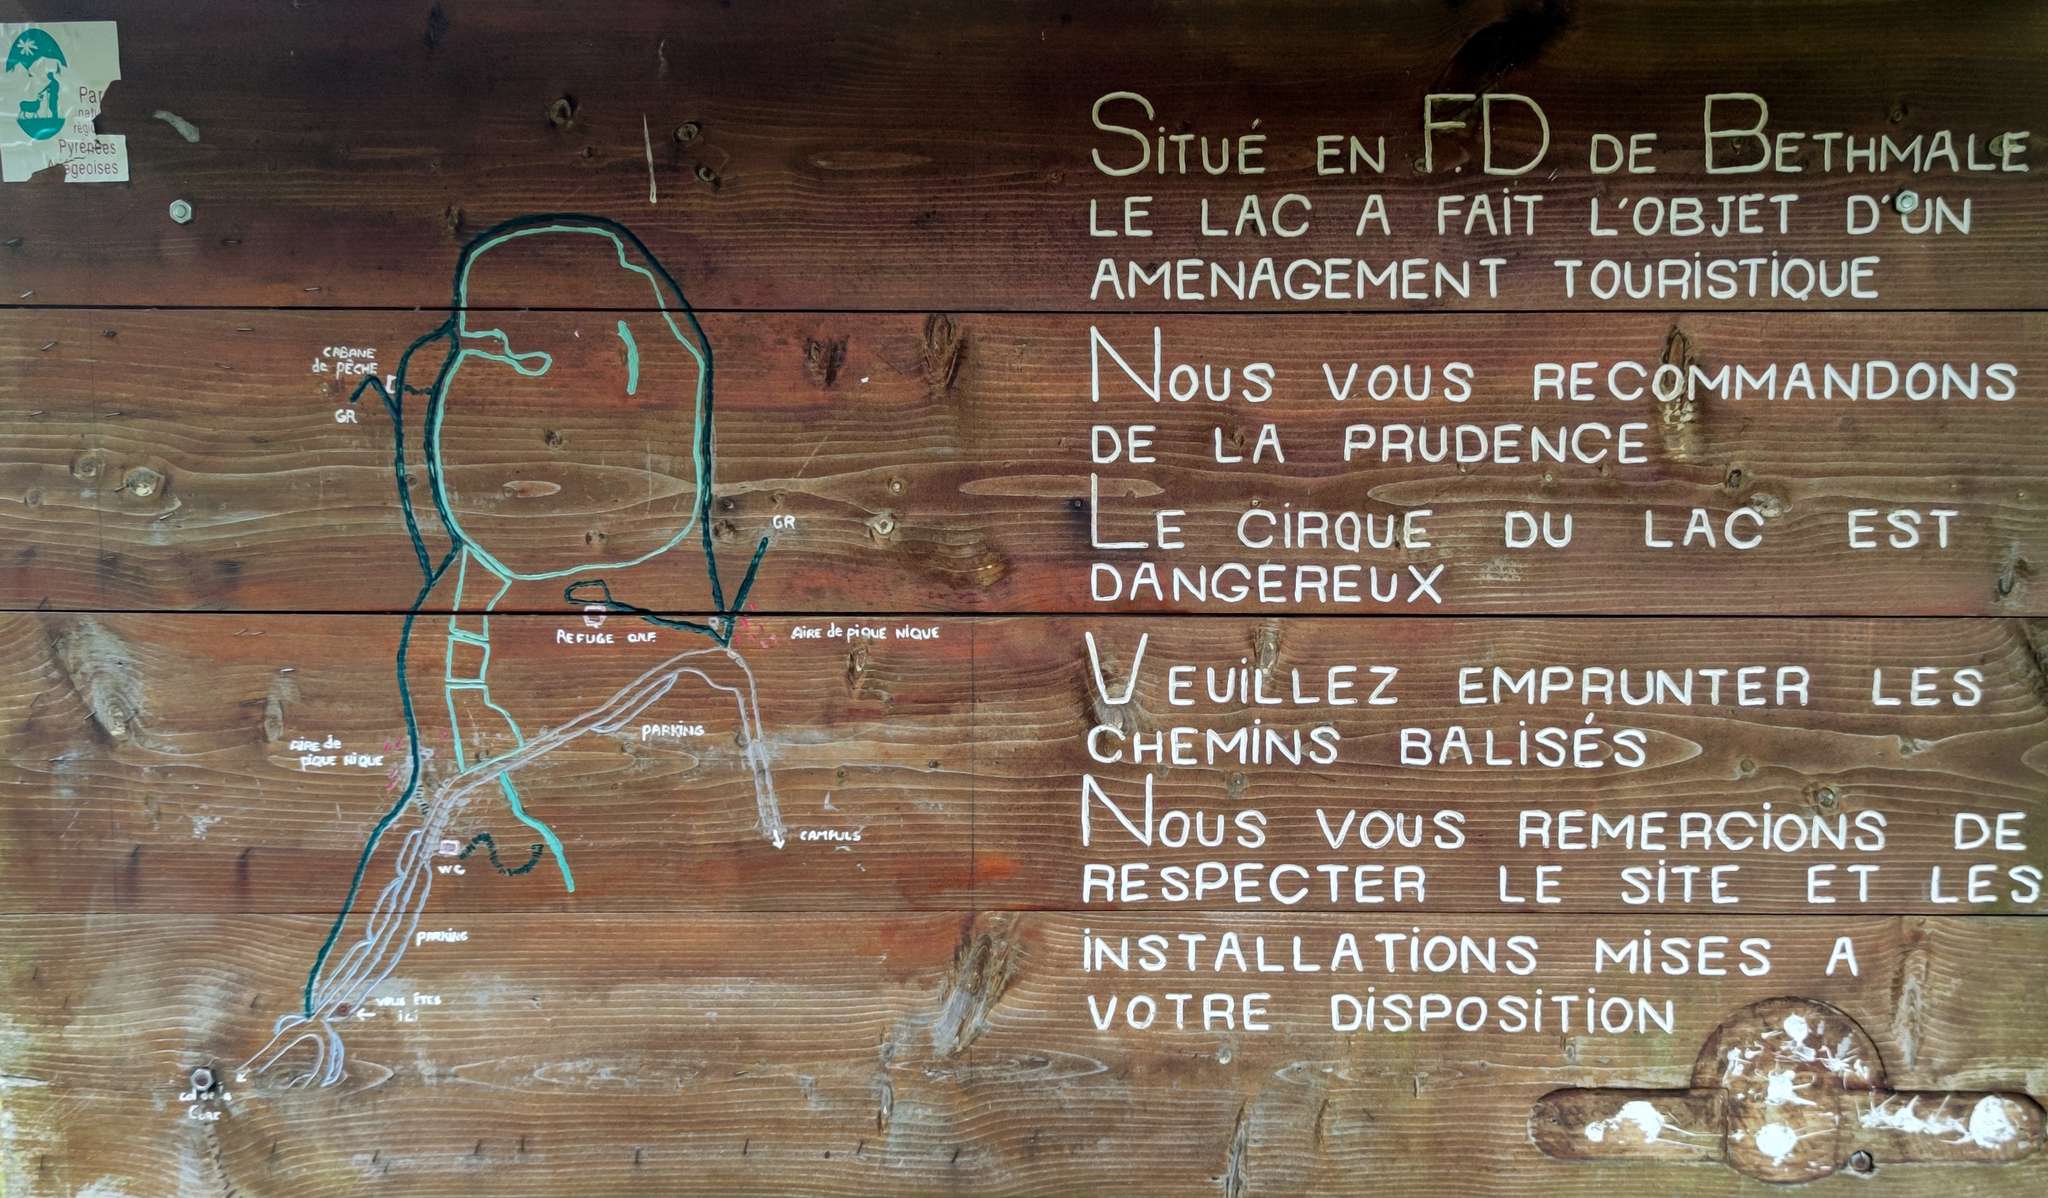 Par
nati
régi
Pyrénées
SITUÉ EN F.D DE BETHMALE
LE LAC A FAIT L'OBJET D'UN
AMENAGEMENT TOURISTIQUE
NOUS VOUS RECOMMANDONS
DE LA PRUDENCE
LE CIRQUE DU LAC EST
DANGEREUX
VEUILLEZ EMPRUNTER LES
CHEMINS BALISÉS
NOUS VOUS REMERCIONS DE
RESPECTER LE SITE ET LES
INSTALLATIONS MISES A
VOTRE DISPOSITION
CABANE
de PÊCHE
GR
GR
REFUGE O.N.F.
AIRE de PIQUE NIQUE
PARKING
AIRE de
PIQUE NIQUE
WC
PARKING
VOUS ÊTES
ICI
col de la